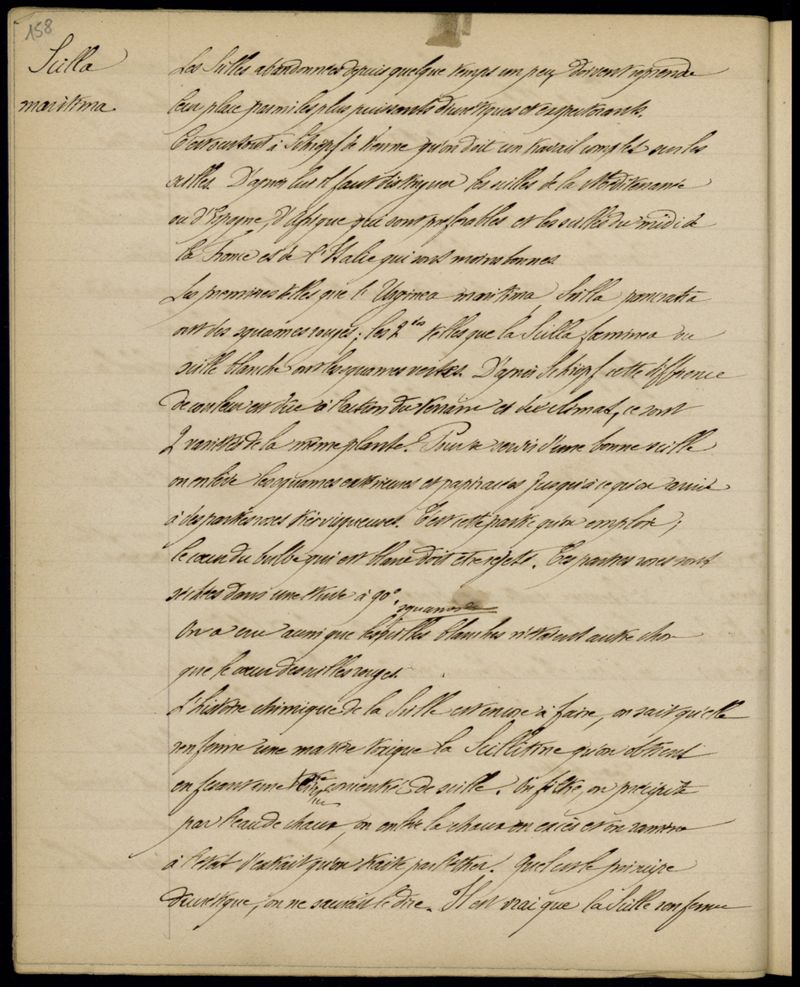 158
Scilla
maritima
Les Scilles abandonnées depuis quelque temps un peu doivent reprendre
leur place parmi les plus puissants diurétiques et expectorants.
C'est surtout à Schropf de Vienne qu'on doit un travail complet sur les
scilles. D'après lui il faut distinguer les scilles de la Méditerranée
ou d'Espagne, d'Afrique qui sont préférables et les scilles du midi de
la France et de l'Italie qui sont moins bonnes.
Les premières telles que l' Urginea maritima, Scilla pancratia
ont des squames rouges ; les 2èes telles que la Scilla faeminea ou
scille blanche ont les squames vertes. D'après Schropf cette différence
de couleur est due à l'action du terrain et du climat, ce sont
2 variétés de la même plante. Pour se servir d'une bonne scille
on enlève les squames extérieures et papiracées jusqu'à ce qu'on arrive
à des parties roses très visqueuses. C'est cette partie qu'on emploie ;
le cœur du bulbe qui est blanc doit être rejeté. Ces parties roses sont
séchées dans une étuve à 90°.
squames de
On a cru aussi que les scilles blanches n'étaient autre chose
que le cœur des scilles rouges.
L'histoire chimique de la Scille est encore à faire, on sait qu'elle
renferme une matière toxique la Scillitine qu'on obtient
en faisant une concentrée de scille. On filtre, on précipite
par l'eau de chaux, on enlève la chaux en excès et on ramène
à l'état d'extrait qu'on traite par l'éther. Quel est le principe
diurétique, on ne saurait le dire. Il est vrai que la Scille renferme